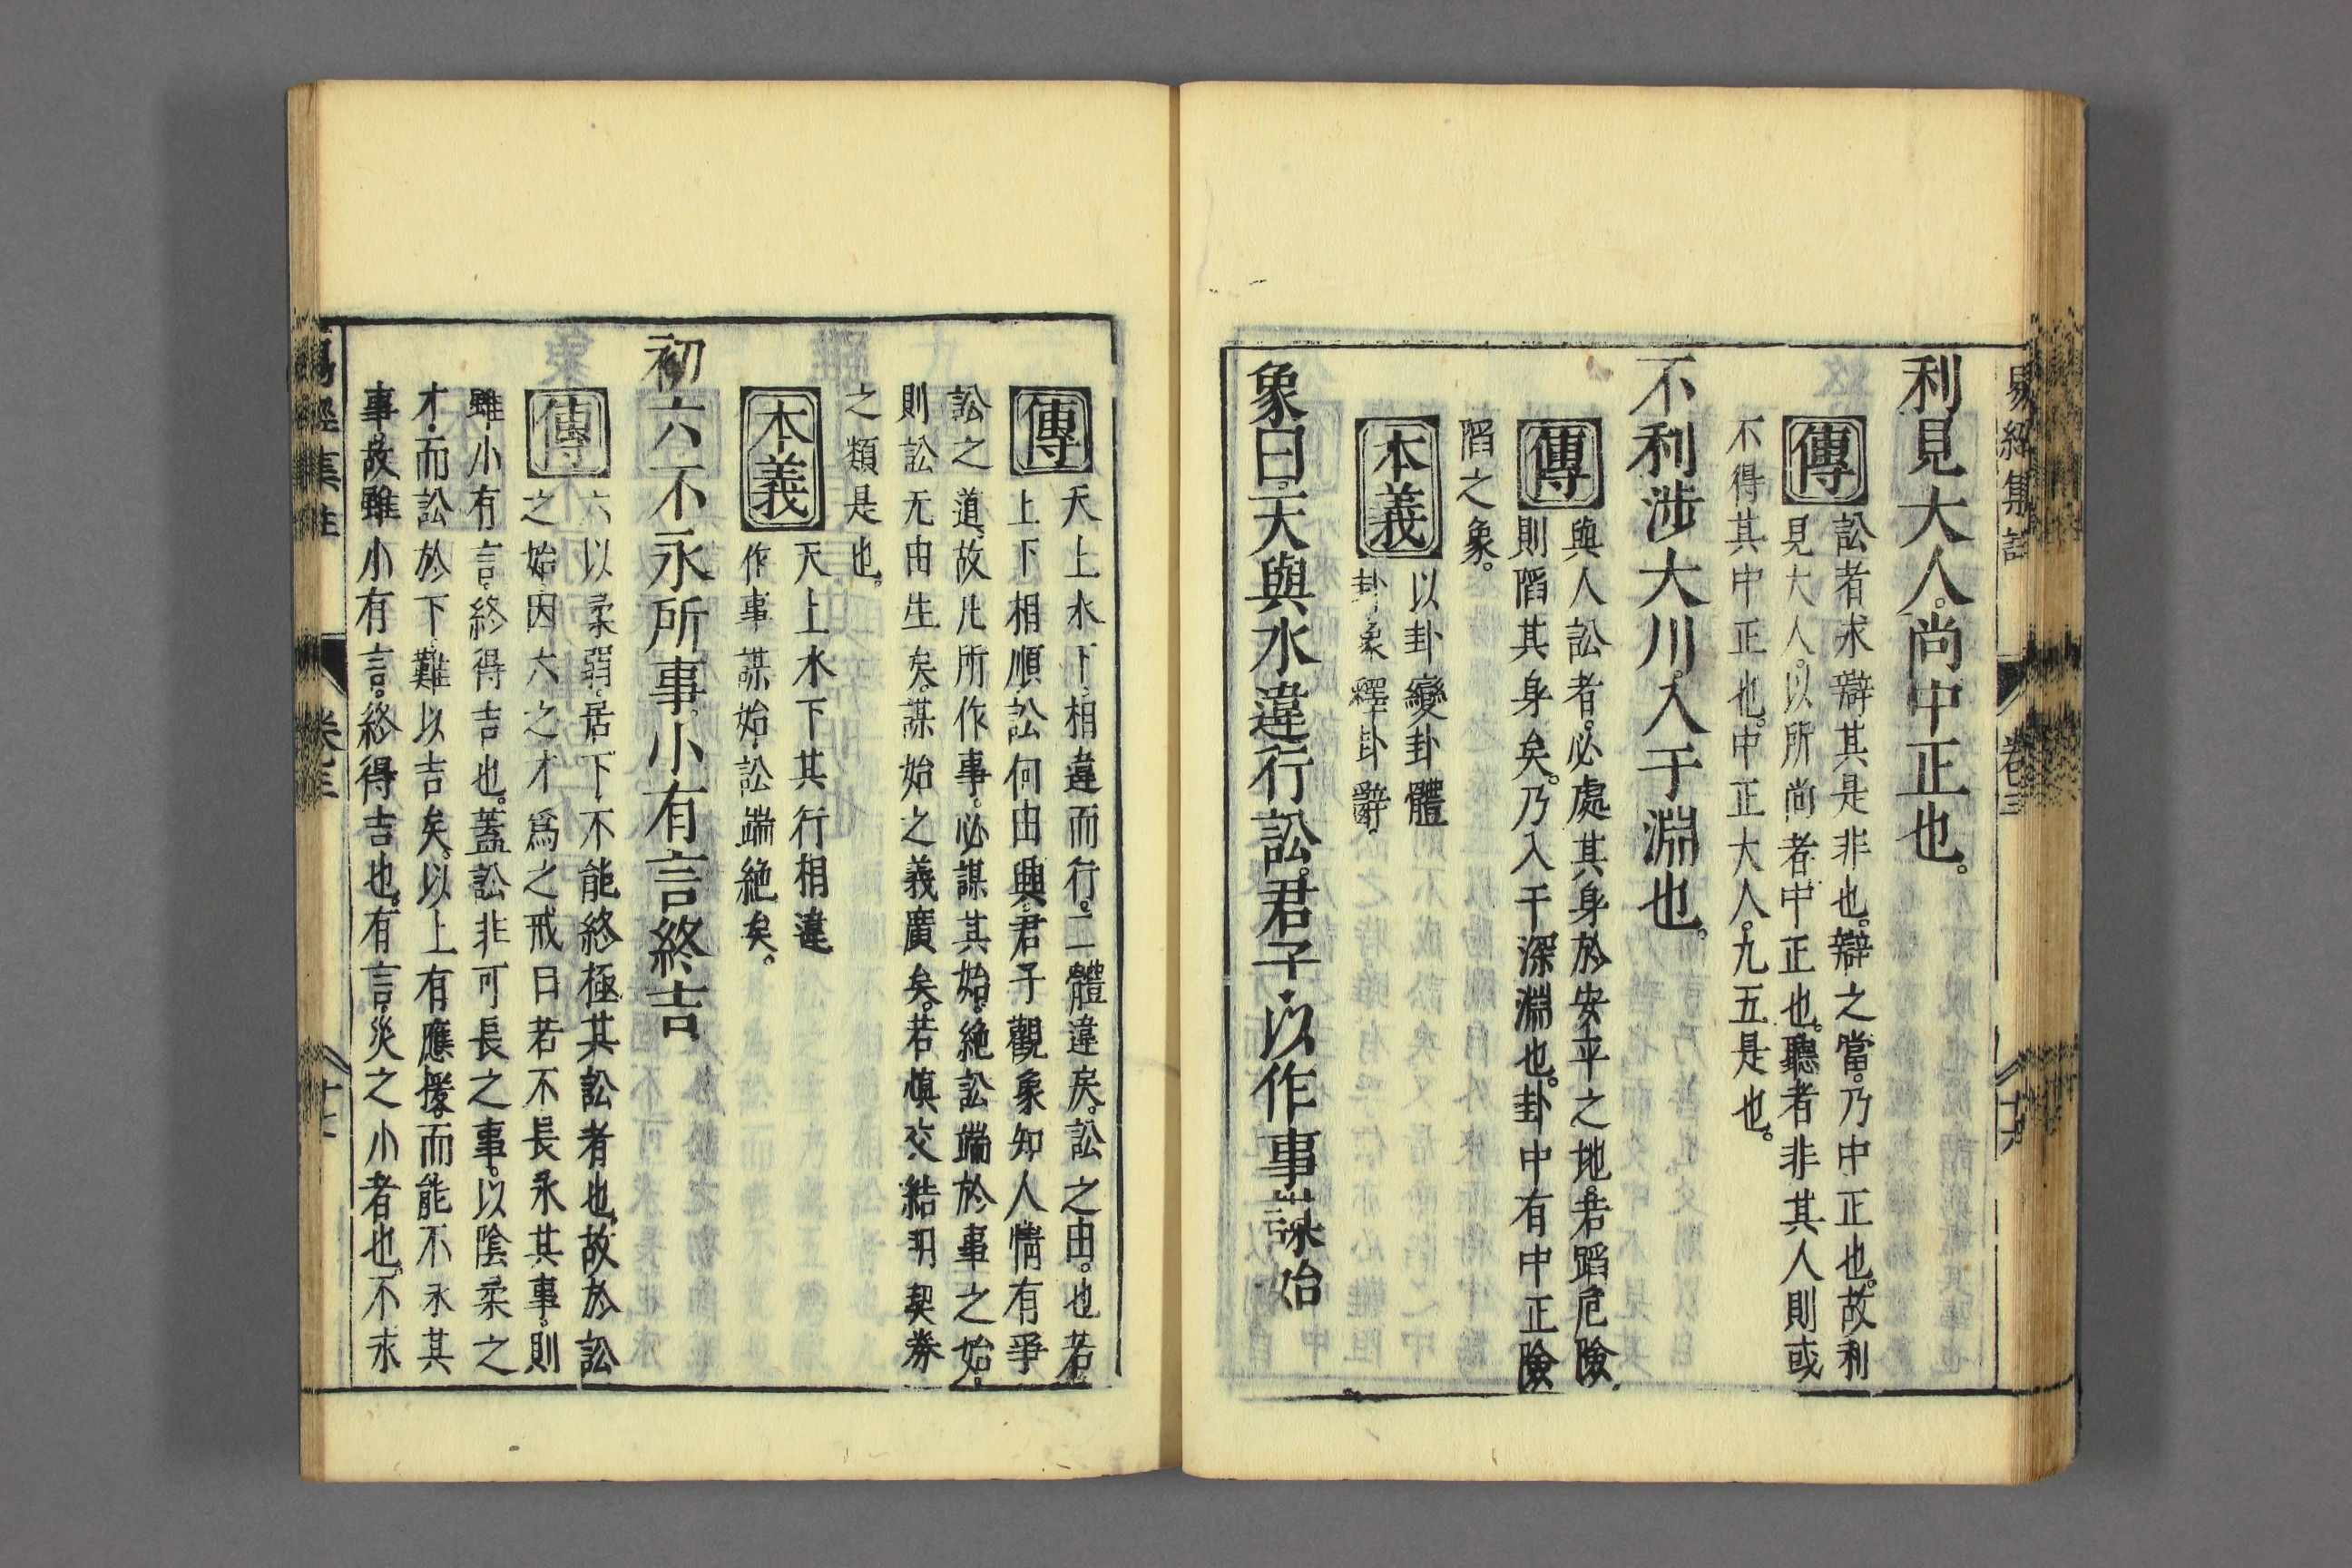 易經集註 卷三 十六
利見大人。尚中正也。
傳 訟者求辯其是非也。辯之當。乃中正也。故利
見大人。以所尚者中正也。聽者非其人則或
不得其中正也。中正大人。九五是也。
不利涉大川。入于淵也。
傳 與人訟者。必處其身於安平之地。若蹈危險
則陷其身矣。乃入于深淵也。卦中有中正險
陷之象。
本義 以卦變卦體
卦象釋卦辭。
象曰。天與水違行訟。君子以作事謀始
傳 天上水下。相違而行。二體違戾。訟之由。也若
上下相順。訟何由興。君子觀象知人情有爭
訟之道。故凡所作事。必謀其始。絕訟端於事之始。
則訟无由生矣。謀始之義廣矣。若慎交結明契券
之類是也。
本義 天上水下其行相違
作事謀始。訟端絕矣。
初六不永所事。小有言終吉
傳 六以柔弱。居下。不能終極其訟者也。故於訟
之始因六之才爲之戒曰若不長永其事。則
雖小有言。終得吉也。蓋訟非可長之事。以陰柔之
才。而訟於下。難以吉矣。以上有應援。而能不永其
事故雖小有言。終得吉也。有言。災之小者也。不永
易經集註 卷三 十七